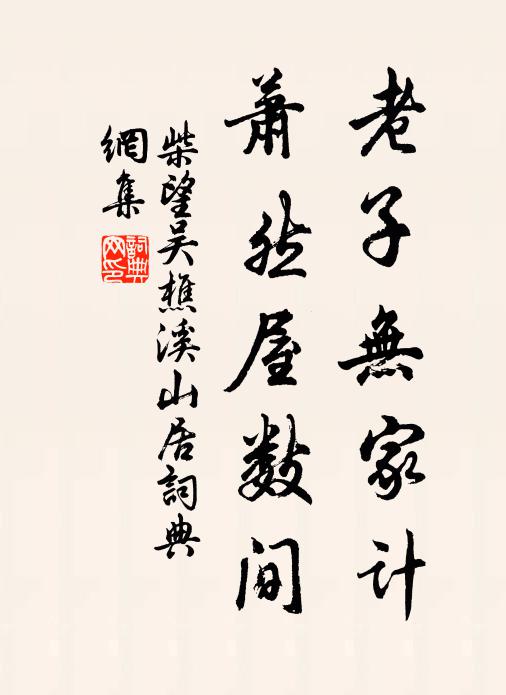 老子無家計
蕭然屋数间
柴望吴樵溪山居詞典
網集
詞典
网印